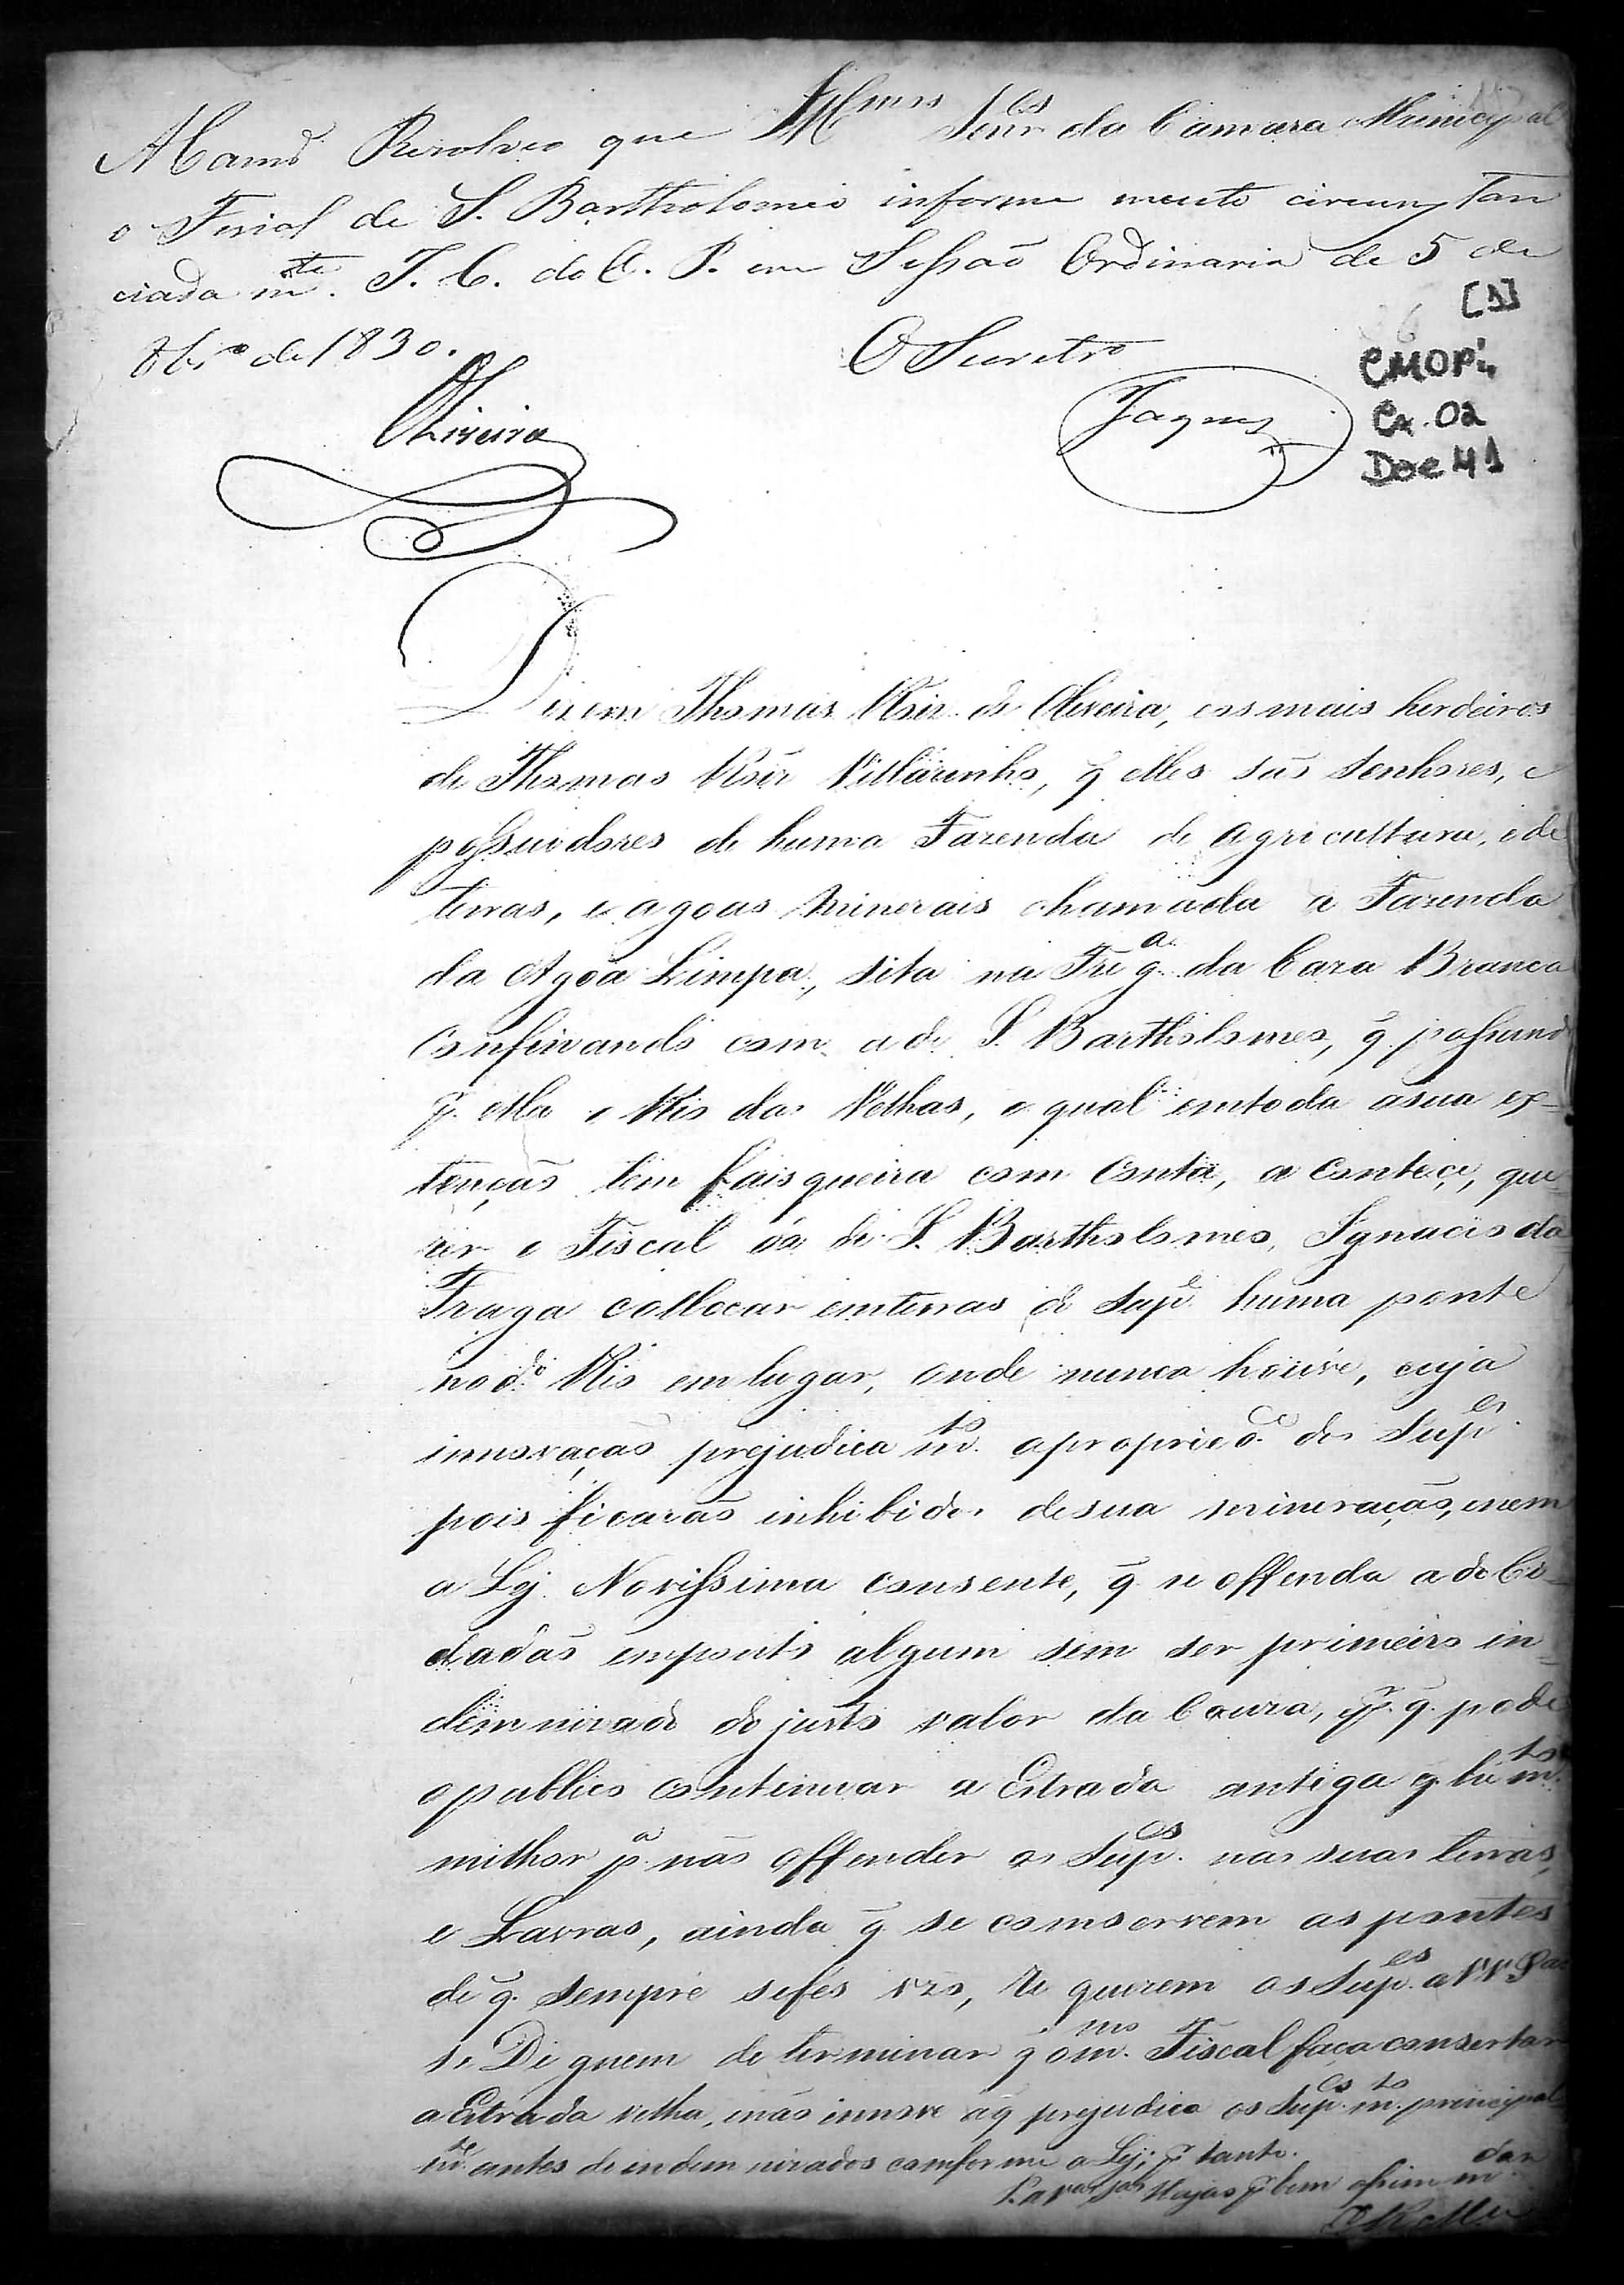 Illmos Senres da Camara Municipal
A Camª Resolveo que
o Fiscal de S. Bartholomeo informe muito circunstan
ciadamte. P. C. do O. P. em Sessaõ Ordinaria de 5 de
8brº de 1830.
O Secretrº
Oliveira
Jaques
[1]
CMOP:
Cx. 02
Doc 41
Dizem Thomas Roiz. de Oliveira, e os mais herdeiros
de Thomas Roiz Villarinho, q̃ elles saõ Senhores, e
possuidores de huma Fazenda de agricultura, e de
terras, e agoas minerais chamada a Fazenda
da Agoa Limpa, sita na Freg.a da Caza Branca
Confinando com a de S. Bartholomeo, q̃ passando
p. ella o Rio das Velhas, o qual em toda a sua ex=
tençaõ tem faisqueira com Conta, a Contece, que=
rer o Fiscal de S. Bartholomeo, Ignacio da
Fraga collocar em terras do Sup.e huma ponte
no d.o Rio em lugar, onde nunca houve, cuja
innovaçaõ prejudica m.to a propried.e dos Sup.es
pois ficaraõ inhibidos de sua mineraçaõ, e nem
a Ley Novissima consente, q̃ se offenda a do Ci=
dadaõ em ponto algum sem ser primeiro in=
demnizado do justo valor da Couza, q̃ pode
o publico continuar a Estrada antiga q̃ hé m.to
milhor p.a naõ offender os Sup.es nas suas terras,
e Lavras, ainda q̃ se comservem as pontes
de q̃ Sempre se fés uzo, e querem os Sup.es a VV. S.as
se Dignem determinar q̃ o m.mo Fiscal faça consertar
a Estrada velha, e naõ innove a q̃ prejudica os Sup.es m.to principal
m.te antes de indemnizados comforme a Ley; p. tanto.
P. a V.as S.as Hajaõ p. bem assim m.dar
E R Mce